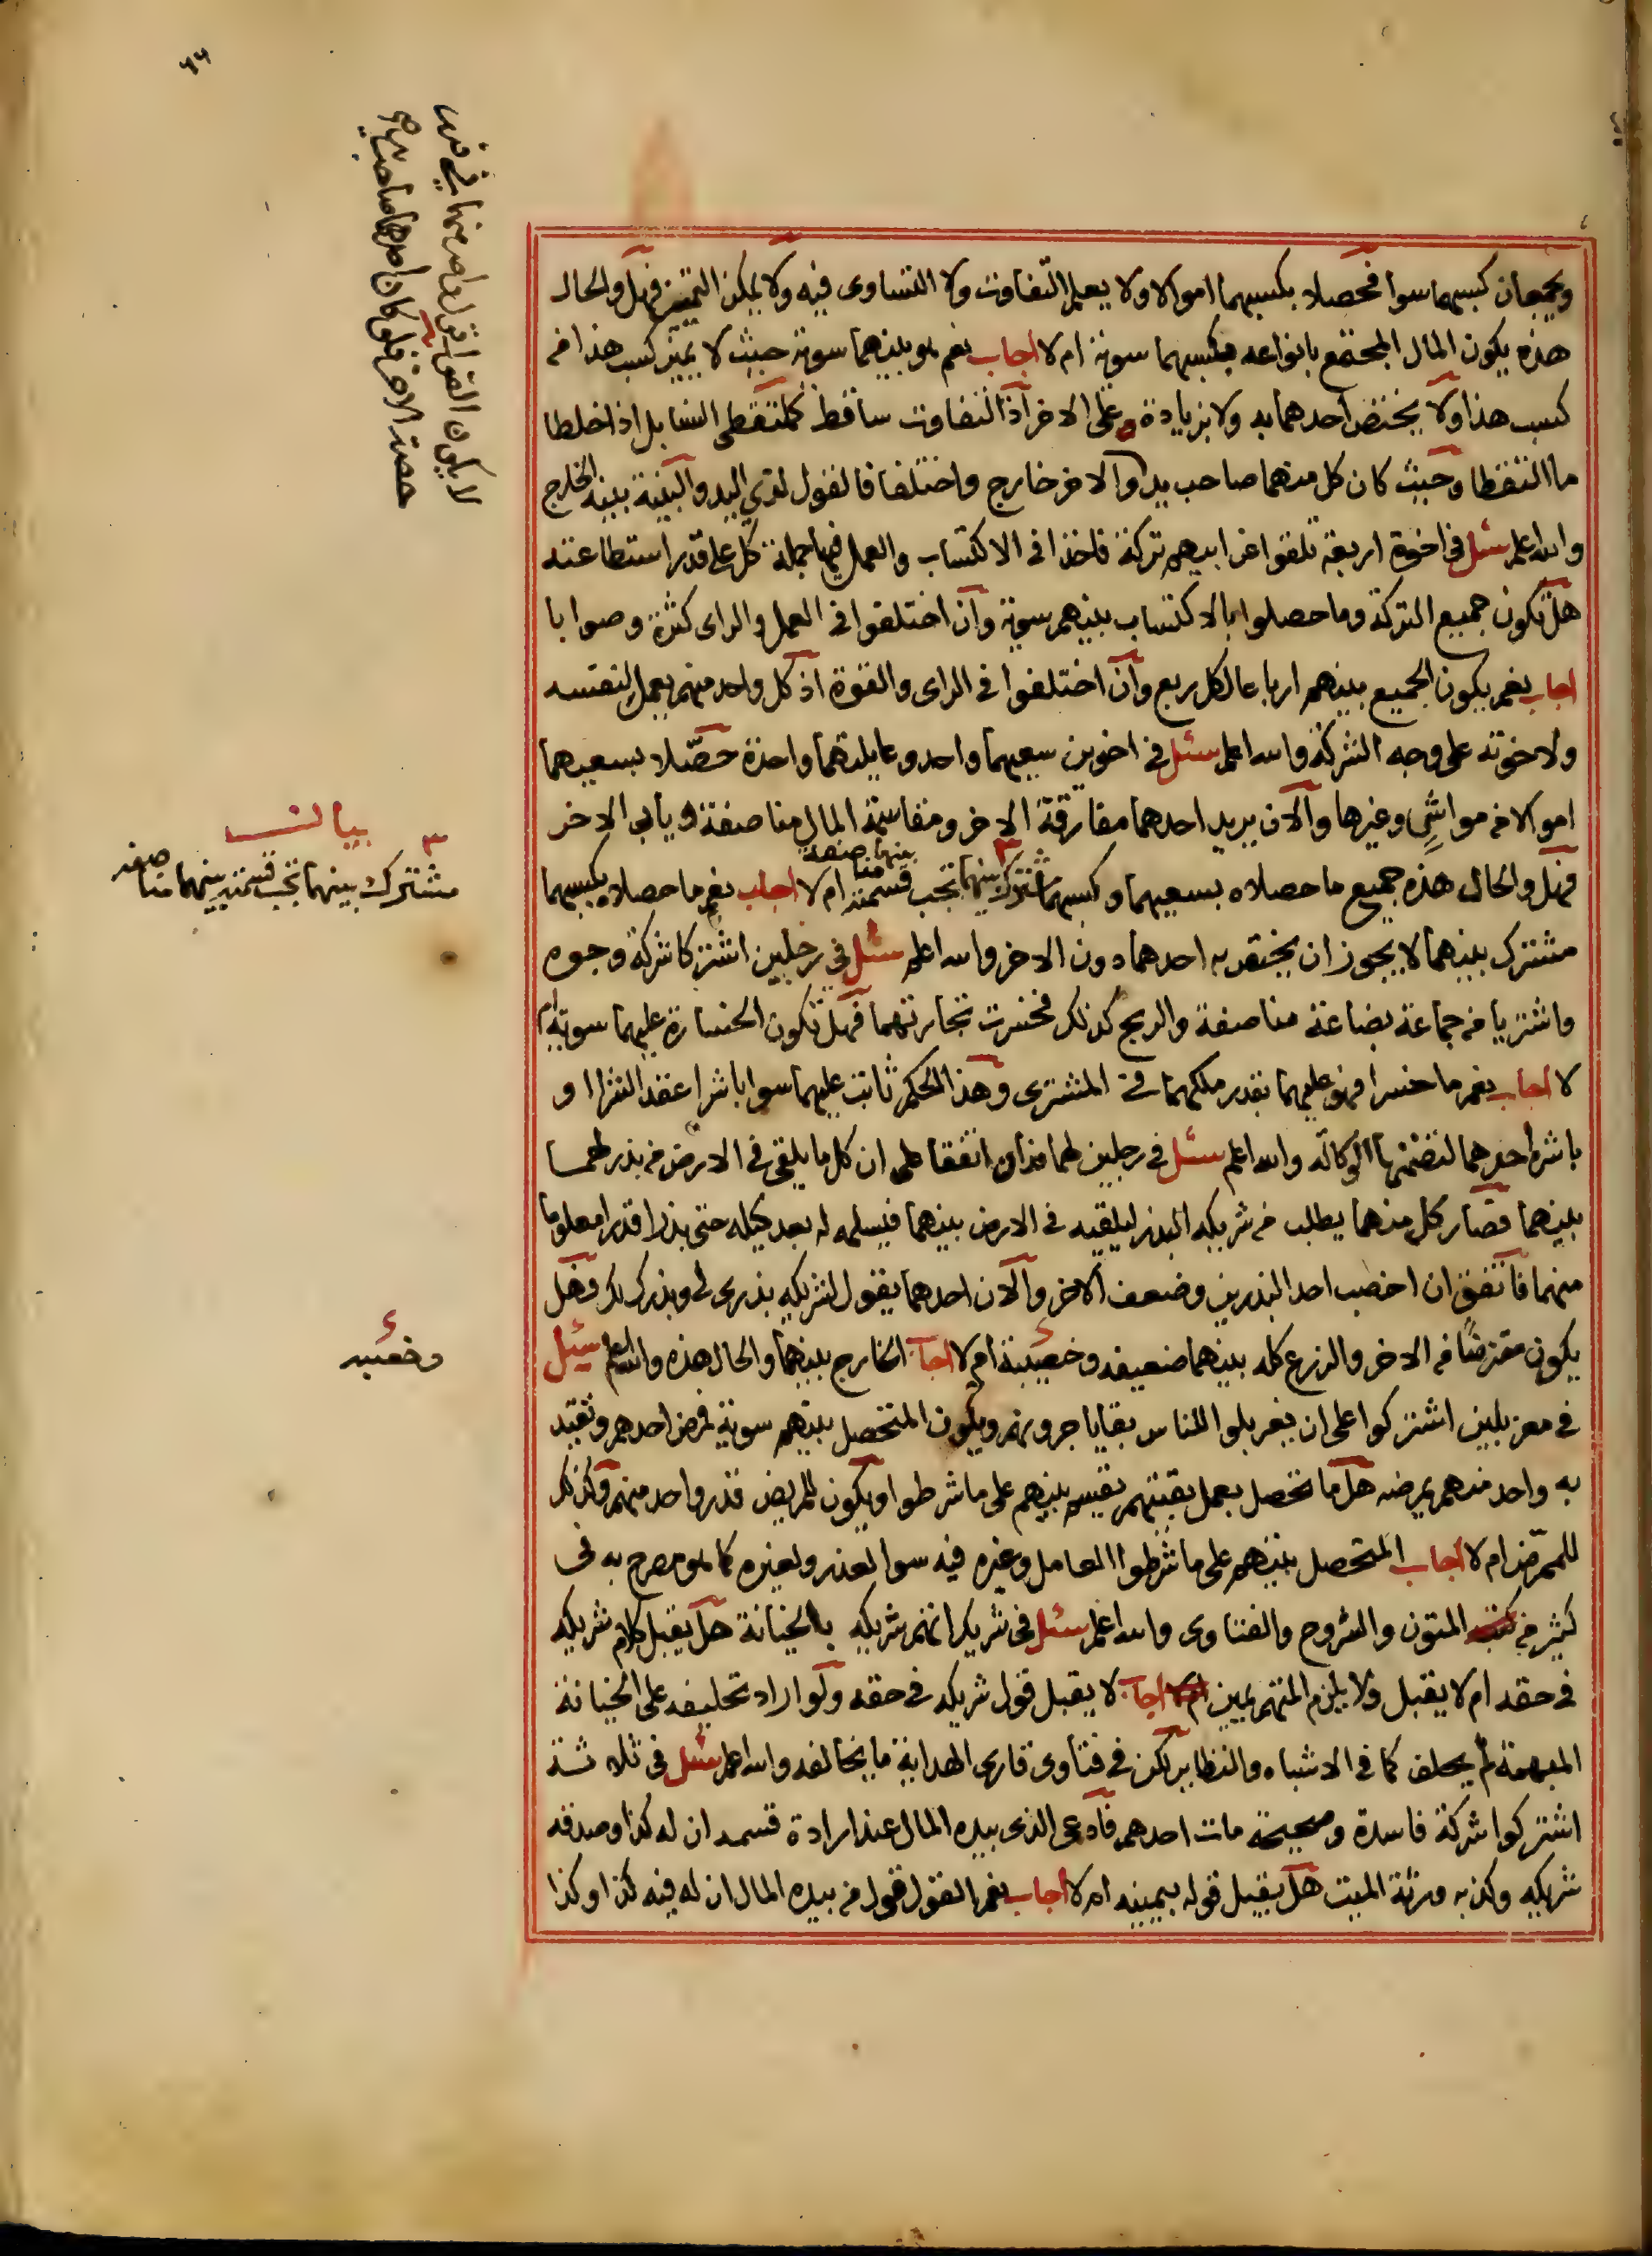 ويجمعان كسبهما سوا فحصلا بكسبهما اموالا ولا يعلم التفاوت ولا التساوى فيه ولا يمكن التمييز فهل والحال
هذه يكون المال المجتمع بانواعه بكسبهما سوية ام لا اجاب نعم هو بينهما سوية حيث لا يميز كسب هذا من
كسب هذا ولا يختص احدهما به ولا بزيادة على الاخر اذ التفاوت ساقط كملتقطى السنابل اذا خلطا
ما التقطا وحيث كان كل منهما صاحب يد والاخر خارج واختلفا فالقول لذي اليد والبينة بينة الخارج
والله اعلم سئل فى اخوة اربعة تلقوا عن ابيهم تركة فاخذا فى الاكتساب والعمل فيها جملة كل على قدر استطاعته
هل تكون جميع التركة وما حصلوا بالاكتساب بينهم سوية وان اختلفوا فى العمل والراى كثرة وصوابا
اجاب نعم يكون الجميع بينهم ارباعا لكل ربع وان اختلفوا فى الراى والقوة اذ كل واحد منهم يعمل لنفسه
ولاخوته على وجه الشركة والله اعلم سئل فى اخوين سعيهما واحد وعايلتهما واحدة حصّلا بسعيهما
اموالا من مواشي وغيرها والان يريد احدهما مفارقة الاخر ومقاسمة المال مناصفة ويابى الاخر
فهل والحال هذه جميع ما حصلاه بسعيهما وكسبهما مشترك بينهما تجب قسمته بينهما مناصفة ام لا اجاب نعم ما حصلاه بكسبهما
مشترك بينهما لا يجوز ان يختص به احدهما دون الاخر والله اعلم سئل فى رجلين اشتركا شركة وجوه
واشتريا من جماعة بضاعة مناصفة والربح كذلك فخسرت تجارتهما فهل تكون الخسارة عليهما سوية ام
لا اجاب نعم ما خسرا فهو عليهما بقدر ملكهما فى المشترى وهذا الحكم ثابت عليهما سوا باشرا عقد الشرا او
باشره احدهما لتضمنها الوكالة والله اعلم سئل فى رجلين لهما فدان اتفقا على ان كل ما يلقى فى الارض من بذر لهما
بينهما فصار كل منهما يطلب من شريكه البذر ليلقيه فى الارض بينهما فيسلمه له بعد كيله حتى بذرا قدرا معلوما
منهما فاتفق ان اخصب احد البذرين وضعف الاخر والان احدهما يقول لشريكه بذرى لى وبذرك لك فهل
يكون مقترضا من الاخر والزرع كله بينهما ضعيفه وخصيبه ام لا اجاب الخارج بينهما والحال هذه والله اعلم سئل
فى مغربلين اشتركوا على ان يغربلوا للناس بقايا جرونهم ويكون المتحصل بينهم سوية فمرض احدهم وتقيد
به واحد منهم يمرضه هل ما تحصل بعمل بقيتهم يقسم بينهم على ما شرطوا ويكون للمريض قدر واحد منهم وكذلك
للممرض ام لا اجاب المتحصل بينهم على ما شرطوا العامل وغيره فيه سوا لعذر ولغيره كما هو مصرح به فى
كثير من المتون والشروح والفتاوى والله اعلم سئل فى شريك اتهم شريكه بالخيانة هل يقبل كلام شريكه
فى حقه ام لا يقبل ولا يلزم المتهم يمين اجاب لا يقبل قول شريكه فى حقه ولو اراد تحليفه على الخيانة
المبهمة لم يحلف كما فى الاشباه والنظاير لكن فى فتاوى قارى الهداية ما يخالفه والله اعلم سئل فى ثلاثة
اشتركوا شركة فاسدة وصحيحة مات احدهم فادعى الذى بيده المال عند ارادة قسمه ان له كذا وصدقه
شريكه وكذبه ورثة الميت هل يقبل قوله بيمينه ام لا اجاب نعم القول قول من بيده المال ان له فيه كذا وكذا
لا يكون القول لواحد منهما فى
حصة الاخر فلو كان احدهما صاحب يد
بيان
٣
مشترك بينهما تجب قسمته بينهما مناصفة
وخصيبه